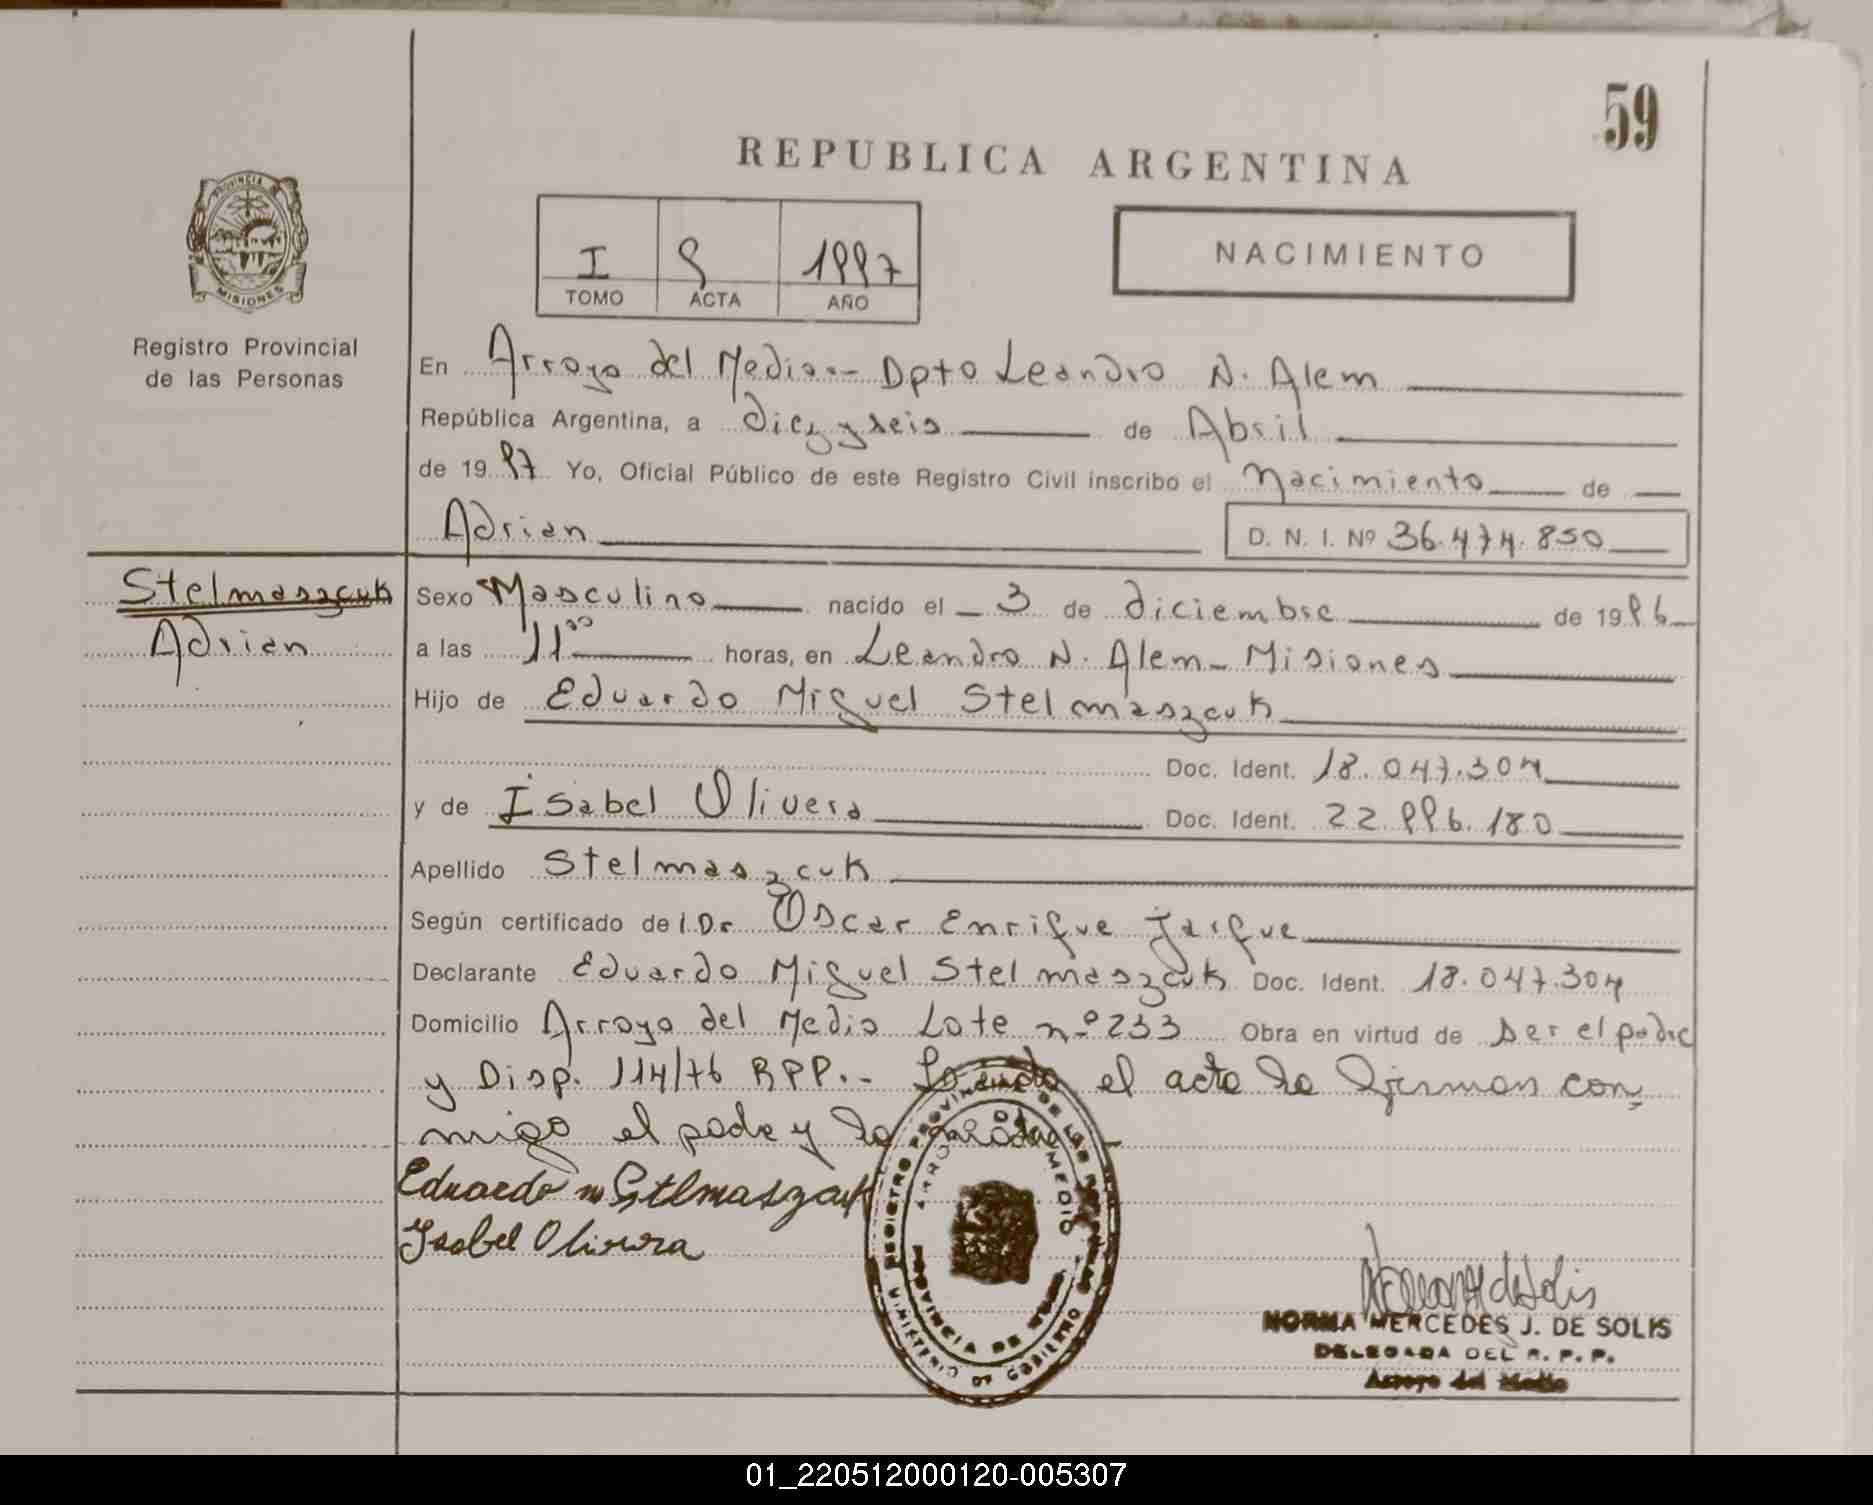 59
REPUBLICA ARGENTINA
I 9 1997
TOMO ACTA AÑO
NACIMIENTO
PROVINCIA DE
MISIONES
Registro Provincial
de las Personas
En Arroyo del Medio.- Dpto Leandro N. Alem
República Argentina, a diez y seis de Abril
de 1997 Yo, Oficial Público de este Registro Civil inscribo el Nacimiento de
Adrian D. N. I. Nº 36.474.850
Stelmaszcuk
Adrian
Sexo Masculino nacido el 3 de diciembre de 1996
a las 11⁰⁰ horas, en Leandro N. Alem - Misiones
Hijo de Eduardo Miguel Stelmaszcuk
Doc. Ident. 18.047.304
y de Isabel Olivera Doc. Ident. 22.996.180
Apellido Stelmaszcuk
Según certificado del Dr Oscar Enrique Jarque
Declarante Eduardo Miguel Stelmaszcuk Doc. Ident. 18.047.304
Domicilio Arroyo del Medio Lote nº 233 Obra en virtud de ser el padre
y Disp. 114/76 RPP.- el acta la firman con
migo el padre y la madre
Eduardo M Stelmaszcuk
Isabel Olivera
REGISTRO PROVINCIAL DE LAS PERSONAS
ARROYO DEL MEDIO
PROVINCIA DE MISIONES
MINISTERIO DE GOBIERNO
NORMA MERCEDES J. DE SOLIS
DELEGADA DEL R. P. P.
Arroyo del Medio
01_220512000120-005307